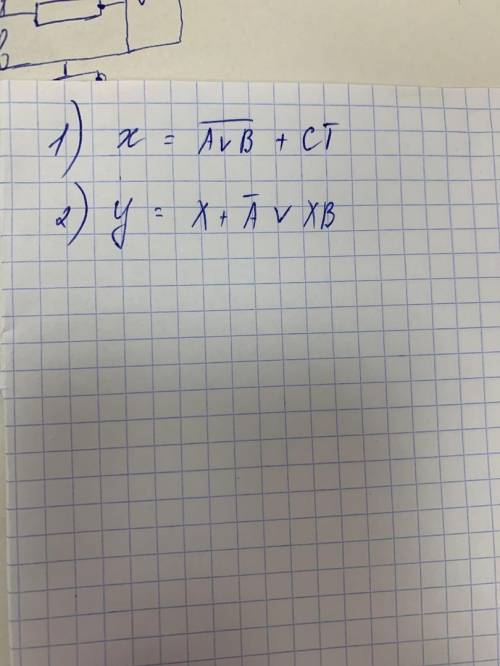 1) x = \overline{A ∨ B} + CT̅
2) y = X + A̅ ∨ XB